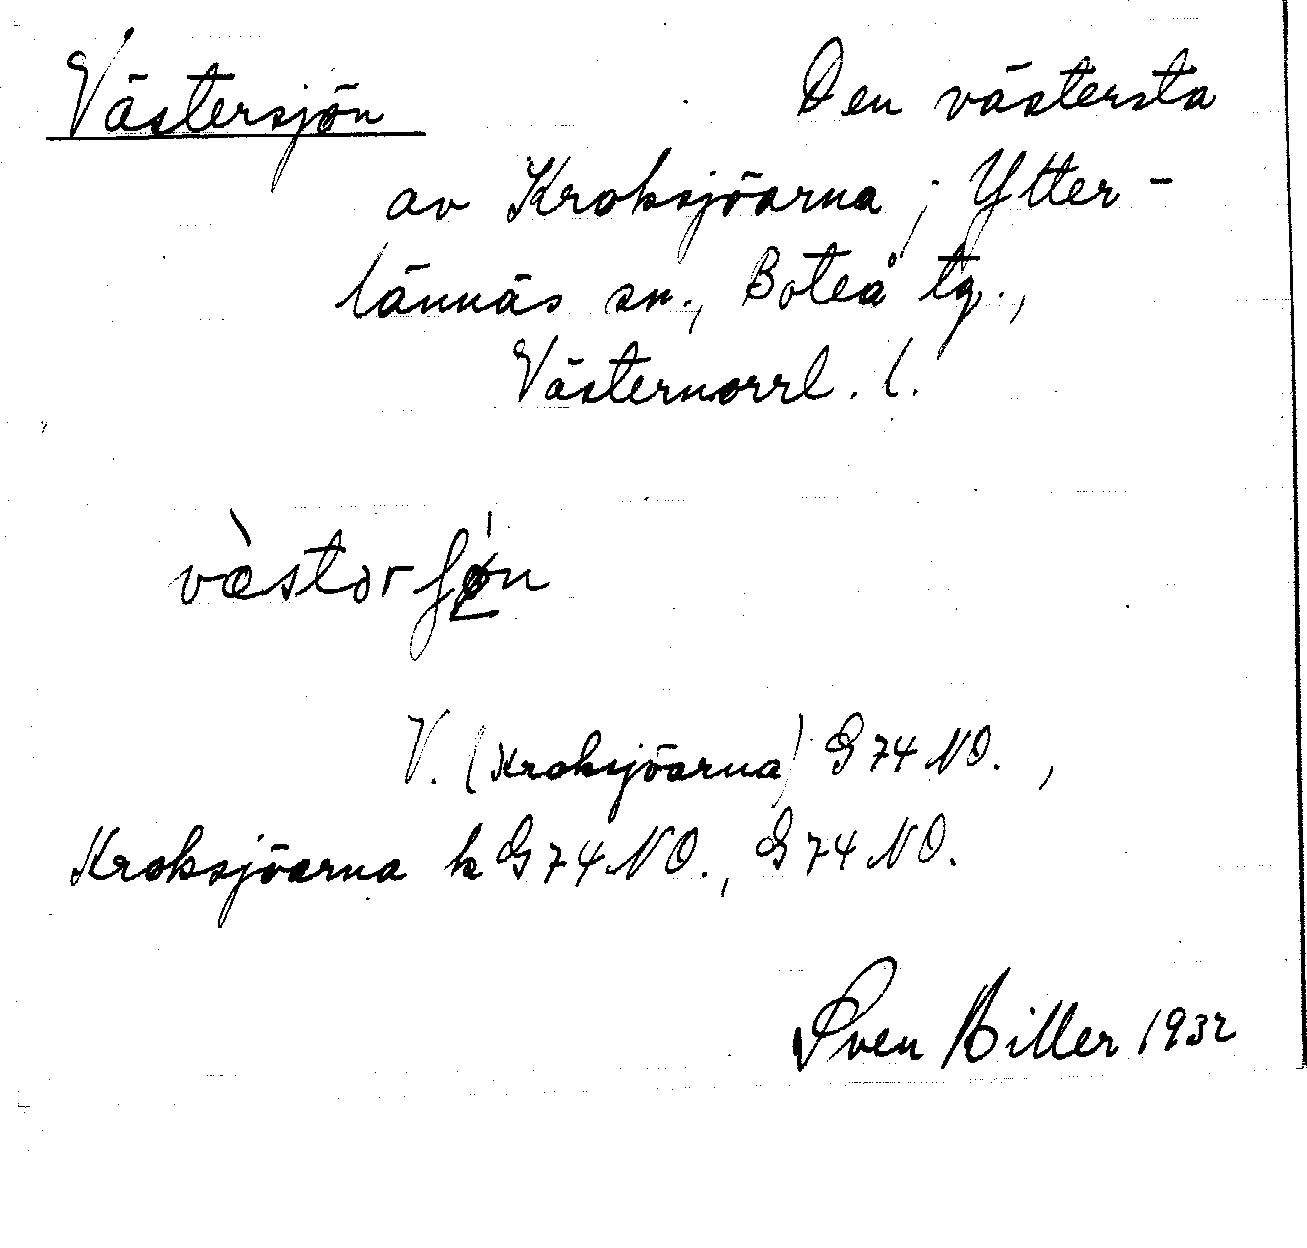 Västersjön Den västersta
av Kroksjöarna; Ytter-
lännäs sn., Boteå tg.,
Västernorrl. l.
V. (Kroksjöarna) G 74 NO.,
Kroksjöarna k G 74 NO., G 74 NO.
Sven Biller 1932